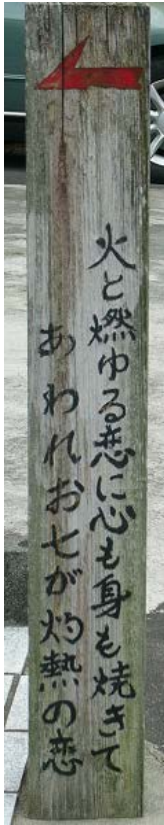 火と燃ゆる恋に心も身も焼きて
あわれお七が灼熱の恋